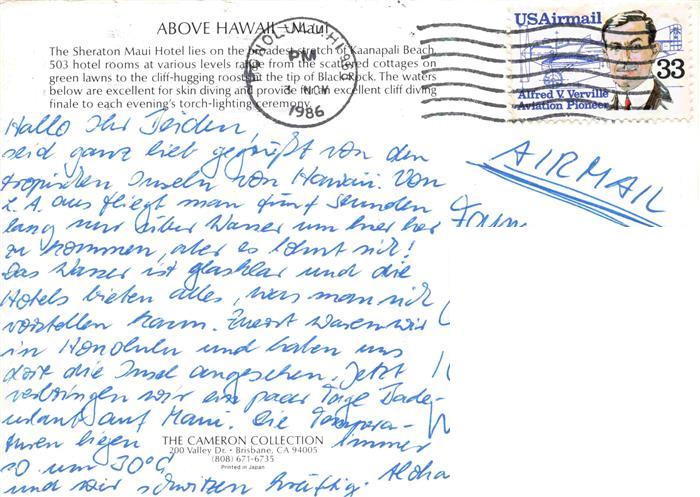 ABOVE HAWAII – Maui
The Sheraton Maui Hotel lies on the broadest stretch of Kaanapali Beach,
503 hotel rooms at various levels range from the scattered cottages on
green lawns to the cliff-hugging roosts at the tip of Black Rock. The waters
below are excellent for skin diving and provide for an excellent cliff diving
finale to each evening's torch-lighting ceremony.
HONOLULU, HI
PM
3 NOV
1986
USAirmail
33
Alfred V. Verville
Aviation Pioneer
AIRMAIL
Hallo Ihr Beiden,
seid ganz lieb gegrüßt von den
tropischen Inseln von Hawaii. Von
L.A. aus fliegt man fünf Stunden
lang nur über Wasser um hier her
zu kommen, aber es lohnt sich!
Das Wasser ist glasklar und die
Hotels bieten alles, was man sich
vorstellen kann. Zuerst waren wir
in Honolulu und haben uns
dort die Insel angesehen. Jetzt
verbringen wir ein paar Tage Bade-
urlaub auf Maui. Die Tempera-
turen liegen immer
so um 30°C
und wir schwitzen kräftig. Aloha
Fam
THE CAMERON COLLECTION
200 Valley Dr. • Brisbane, CA 94005
(808) 671-6735
Printed in Japan